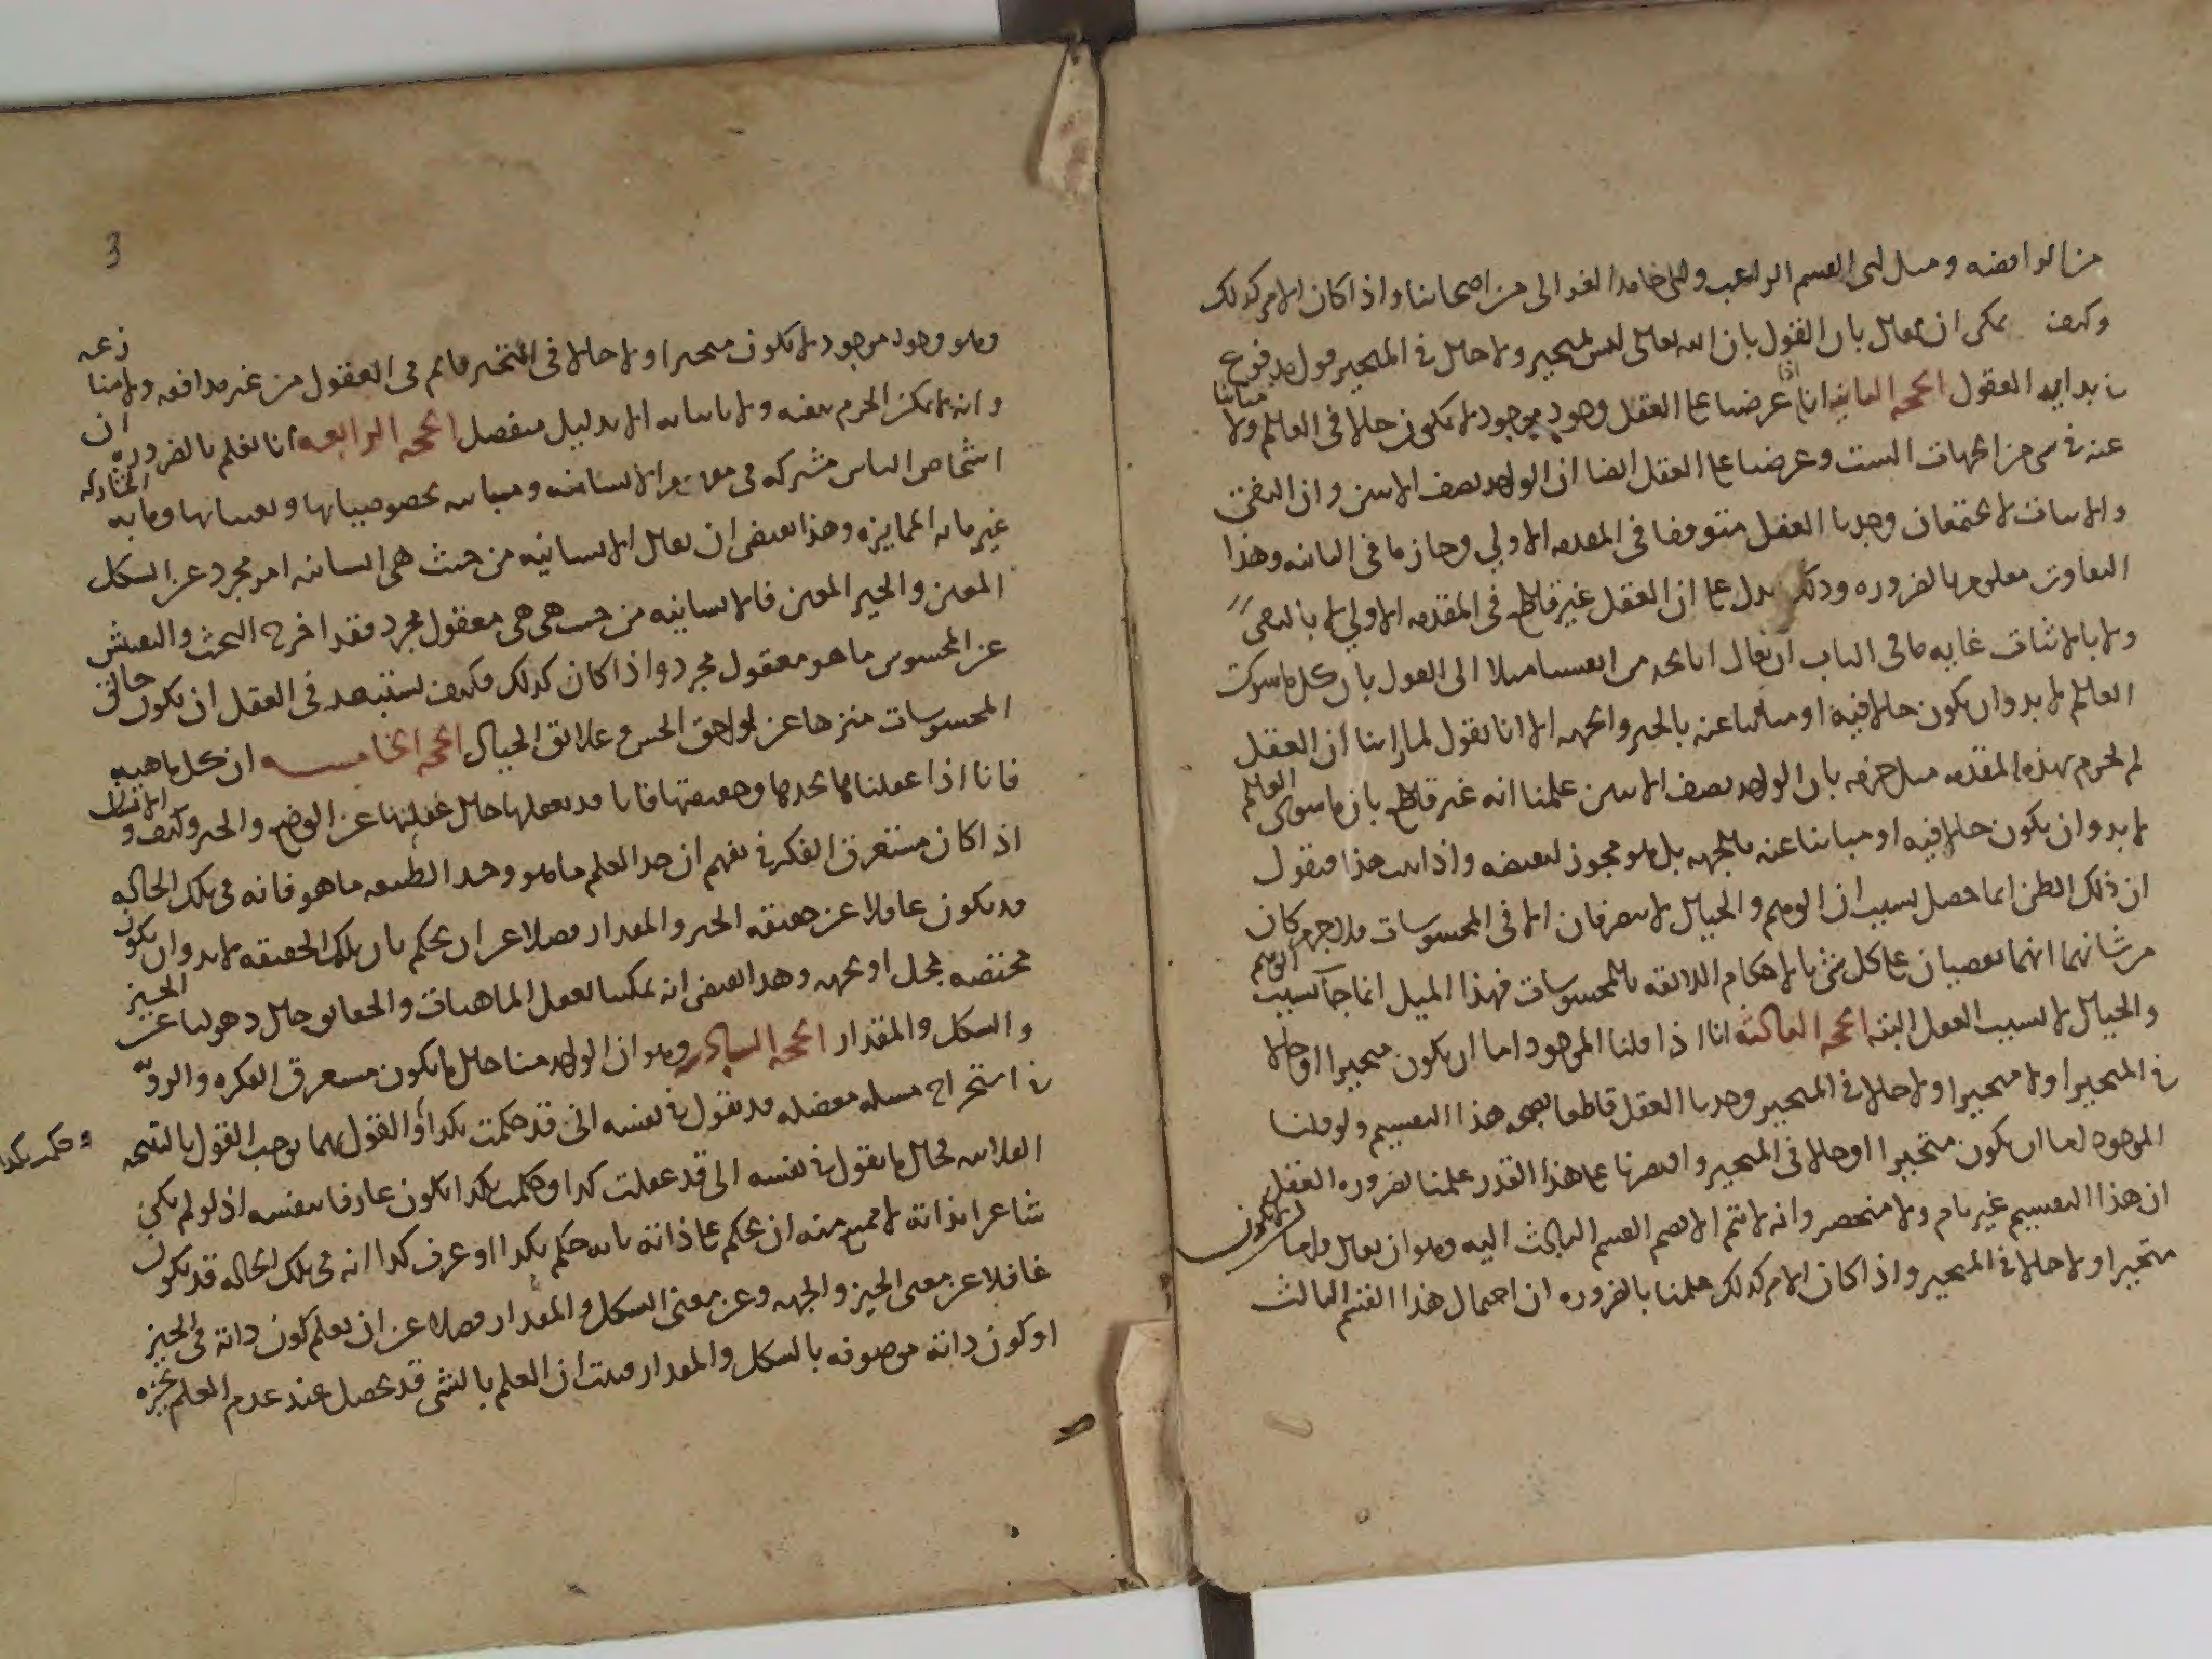 من الرافضه ومثل ابي القسم الراغب وابي حامد الغزالى من اصحابنا واذا كان الامر كذلك
وكيف يمكن ان يقال بان القول بان الله تعالى ليس بمتحيز ولا حال في المتحيز قول مدفوع
في بدايه العقول الحجه الثانيه انا اذا عرضنا على العقل وجود موجود لا يكون حالا فى العالم ولا مباينا
عنه في شى من الجهات الست وعرضنا على العقل ايضا ان الواحد نصف الاثنين وان النفى
والاثبات لا يجتمعان وجدنا العقل متوقفا فى المقدمه الاولي وجازما فى الثانيه وهذا
التفاوت معلوم بالضروره وذلك يدل على ان العقل غير قاطع فى المقدمه الاولي لا بالنفى
ولا بالاثبات غايه ما فى الباب ان يقال انا نجد من انفسنا ميلا الى القول بان كل ما سوى
العالم لا بد وان يكون حالا فيه او مباينا عنه بالحيز والجهه الا انا نقول لما راينا ان العقل
لم يجزم بهذه المقدمه مثل جزمه بان الواحد نصف الاثنين علمنا انه غير قاطع بان ما سوى العالم
لا بد وان يكون حالا فيه او مباينا عنه بالجهه بل هو مجوز لنقيضه واذا ثبت هذا فنقول
ان ذلك الظن انما حصل بسبب ان الوهم والخيال لا يتصرفان الا فى المحسوسات فلا جرم كان
من شانهما انهما يقضيان على كل شى بالاحكام اللائقه بالمحسوسات فهذا الميل انما جا بسبب الوهم
والخيال لا بسبب العقل البته الحجه الثالثه انا اذا قلنا الموجود اما ان يكون متحيزا او حالا
في المتحيز او لا متحيزا ولا حالا فى المتحيز وجدنا العقل قاطعا بصحه هذا التقسيم ولو قلنا
الموجود اما ان يكون متحيزا او حالا فى المتحيز واقتصرنا على هذا القدر علمنا بضروره العقل
ان هذا التقسيم غير تام ولا منحصر وانه لا يتم الا بضم القسم الثالث اليه وهو ان يقال واما ان لا يكون
متحيزا ولا حالا في المتحيز واذا كان الامر كذلك علمنا بالضروره ان احتمال هذا القسم الثالث
3
وهو وجود موجود لا يكون متحيزا ولا حالا فى المتحيز قائم فى العقول من غير مدافعه ولا منازعه
وانه لا يمكن الجزم بنفيه ولا باثباته الا بدليل منفصل الحجه الرابعه انا نعلم بالضروره ان
اشخاص الناس مشتركه فى مفهوم الانسانيه ومتباينه بخصوصياتها وتعيناتها وما به المشاركه
غير ما به الممايزه وهذا يقتضى ان يقال الانسانيه من حيث هى انسانيه امر مجرد عن الشكل
المعين والحيز المعين فالانسانيه من حيث هى هى معقول مجرد فقد اخرج البحث والتفتيش
عن المحسوس ما هو معقول مجرد واذا كان كذلك فكيف يستبعد فى العقل ان يكون خالق
المحسوسات منزها عن لواحق الحس وعلائق الخيال الحجه الخامسه ان كل ماهيه
فانا اذا عقلناها بحدها وحقيقتها فانا قد نعقلها حال غفلتنا عن الوضع والحيز وكيف والانسان
اذا كان مستغرق الفكر في تفهم ان حد العلم ما هو وحد الطبيعه ما هو فانه فى تلك الحاله
قد يكون غافلا عن حقيقه الحيز والمقدار فضلا عن ان يحكم بان تلك الحقيقه لا بد وان تكون
مختصه بمحل او بجهه وهذا يقتضى انه يمكننا تعقل الماهيات والحقائق حال ذهولنا عن الحيز
والشكل والمقدار الحجه السادسه وهو ان الواحد منا حال ما يكون مستغرق الفكره والرويه
في استخراج مسله معضله قد يقول في نفسه انى قد حكمت بكذا او القول بهما يوجب القول بالنتيجه
وحكمت بكذا
الفلانيه فحال ما يقول في نفسه انى قد عقلت كذا وحكمت بكذا يكون عارفا بنفسه اذ لو لم يكن
شاعرا بذاته لامتنع منه ان يحكم على ذاته بانه حكم بكذا او عرف كذا انه فى تلك الحاله قد يكون
غافلا عن معنى الحيز والجهه وعن معنى الشكل والمقدار فضلا عن ان يعلم كون ذاته فى الحيز
او كون ذاته موصوفه بالشكل والمقدار فثبت ان العلم بالشى قد يحصل عند عدم العلم بحيزه